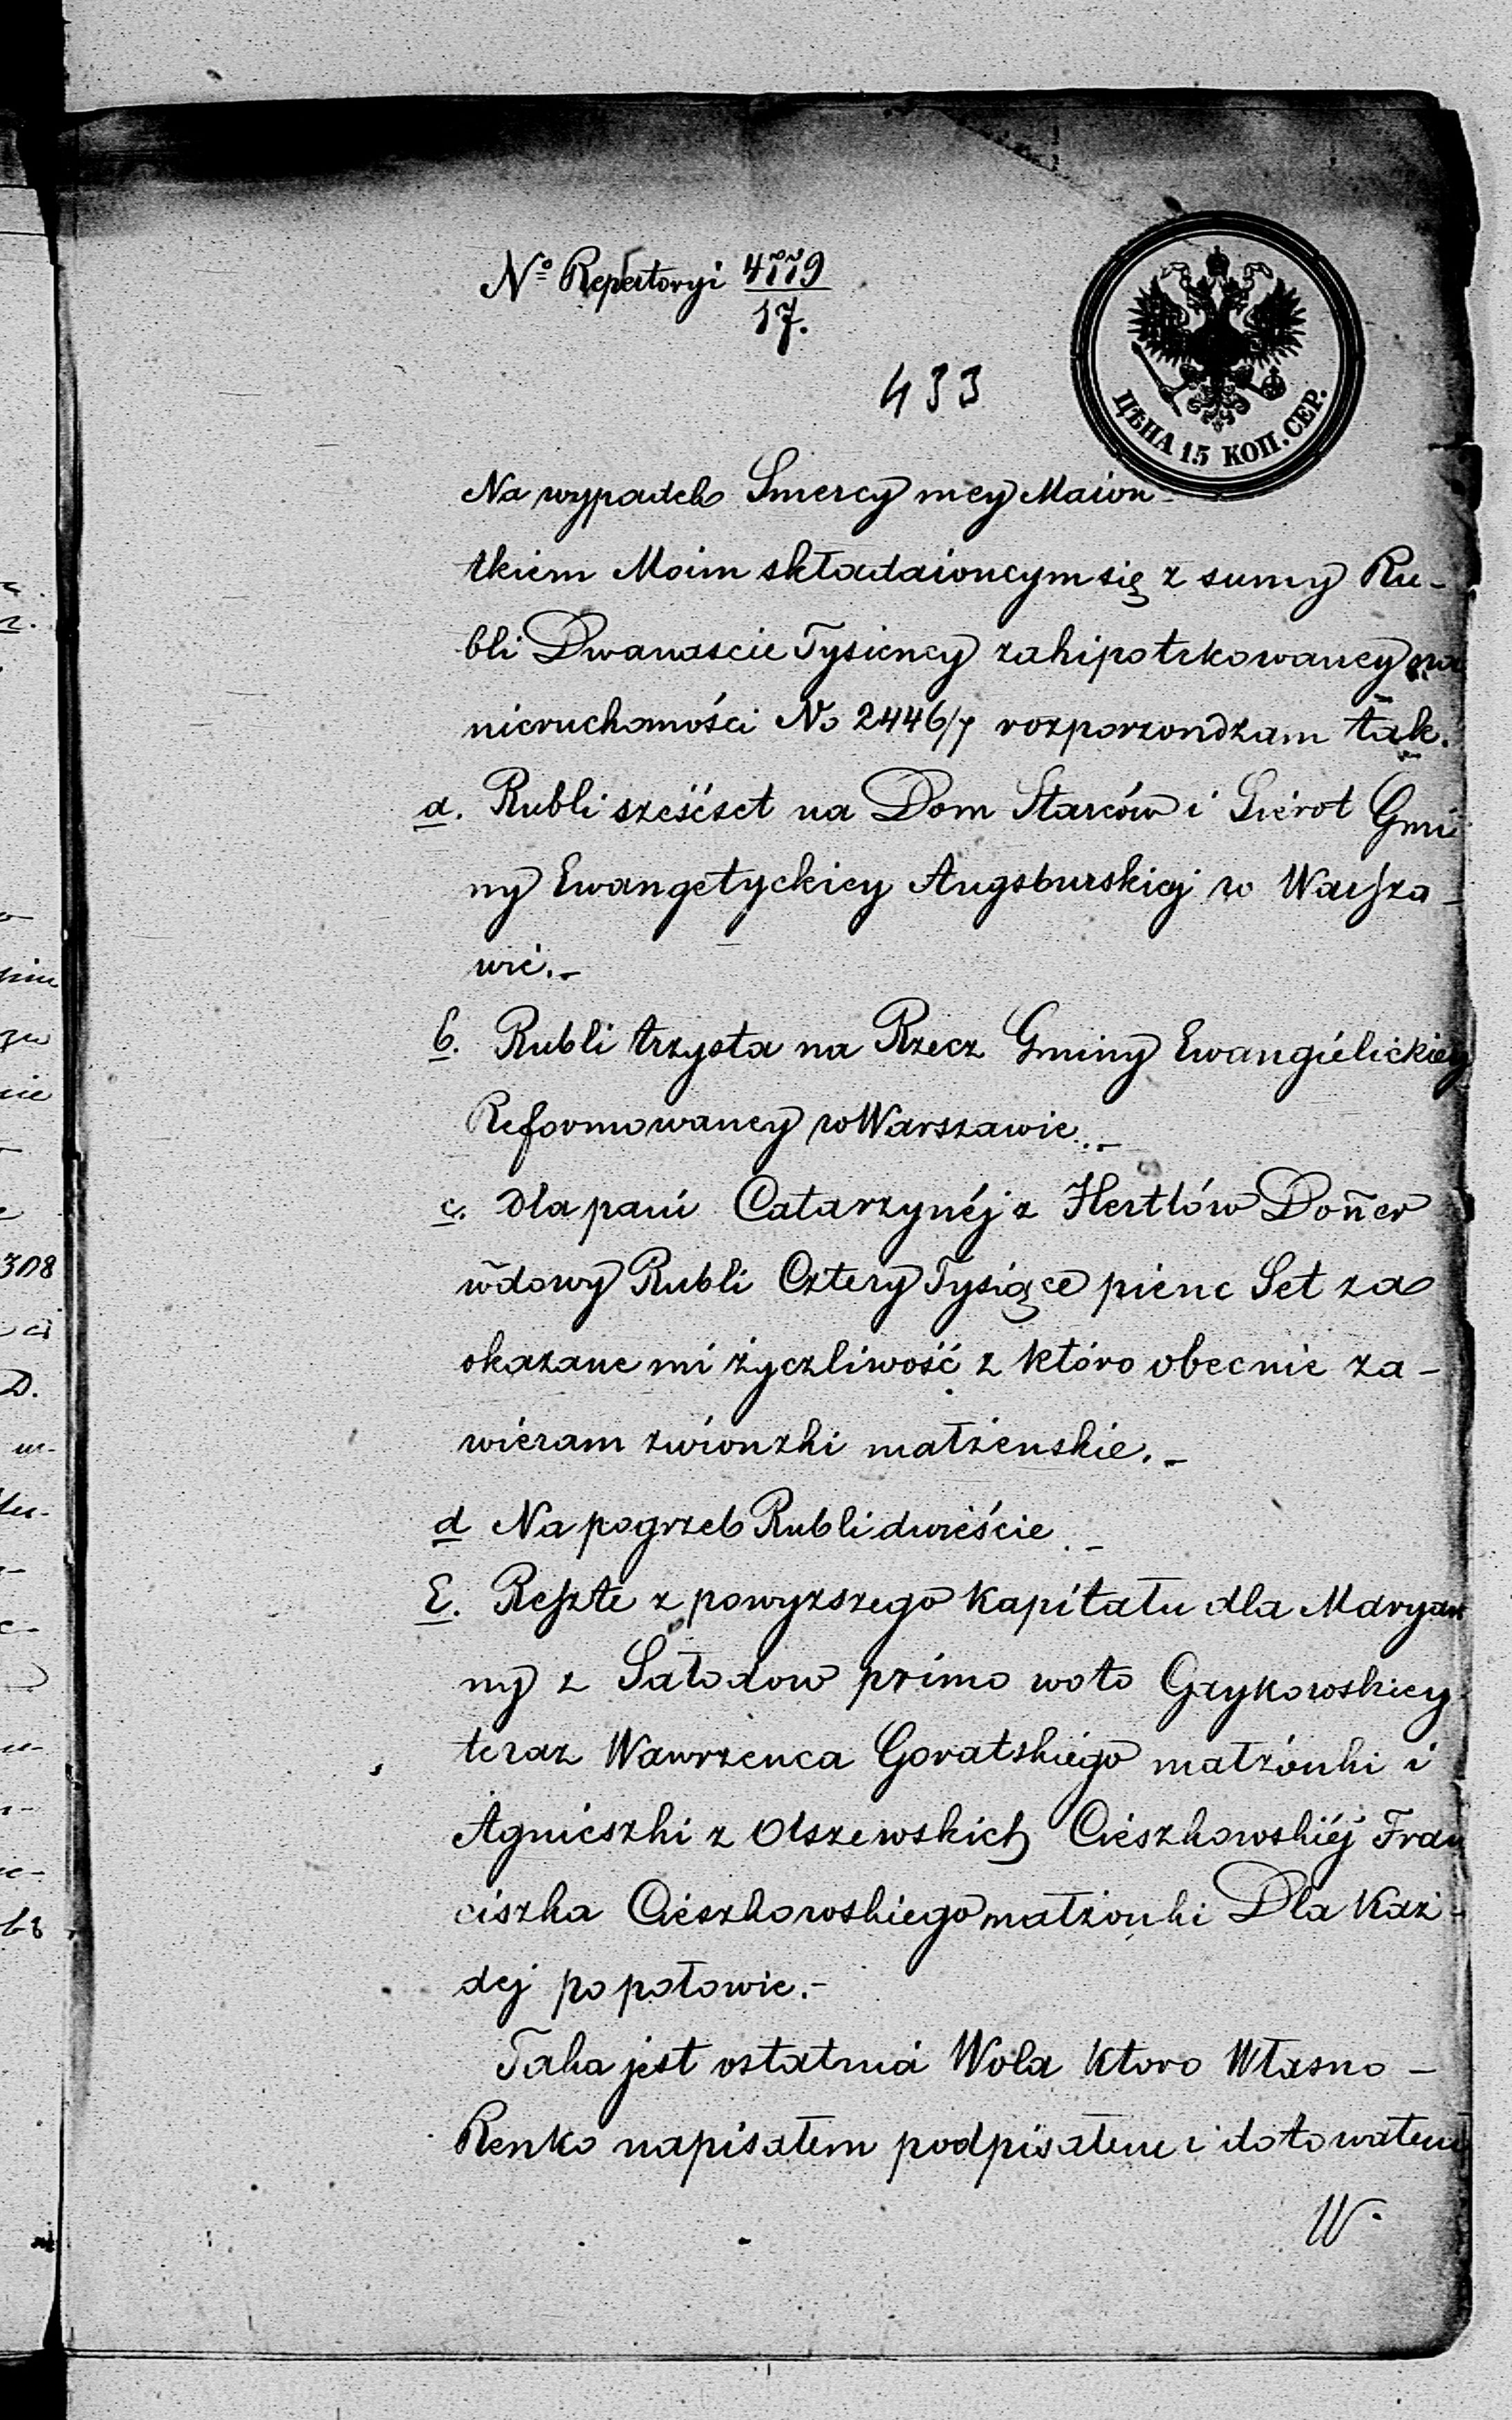 No Repertoryi 4779/17.
433
ЦѢНА 15 КОП. СЕР.
Na wypadek Smercy mey Maion
tkiem Moim składaioncym się z sumy Ru-
bli Dwanascie Tysiency zahipotekowaney na
nieruchomości No 2446/7 rozporzondzam tak.
a. Rubli sześćset na Dom Starców i Sierot Gmi
ny Ewangelyckiey Augsburskiej w Warsza-
wie.-
b. Rubli trzysta na Rzecz Gminy Ewangielickiey
Reformowaney w Warszawie.-
c. Dla pani Catarzynéj z Hertlów Doner
wdowy Rubli Cztery Tysiące pienc Set za
okazane mi życzliwość z któro obecnie za-
wieram zwionzki małżenskie.-
d Na pogrzeb Rubli dwieście.-
E. Reszte z powyzszego Kapitału dla Maryan
ny z Sałodow primo woto Gzykowskiey
teraz Wawrzenca Goratskiego małżonki i
Agnieszki z Olszewskich Cieszkowskiéj Fran
ciszka Cieszkowskiego małżonki Dla Kaz-
dej po połowie.-
Taka jest ostatnia Wola Ktoro Własno-
Renko napisałem podpisałem i datowałem
W.
308
D.